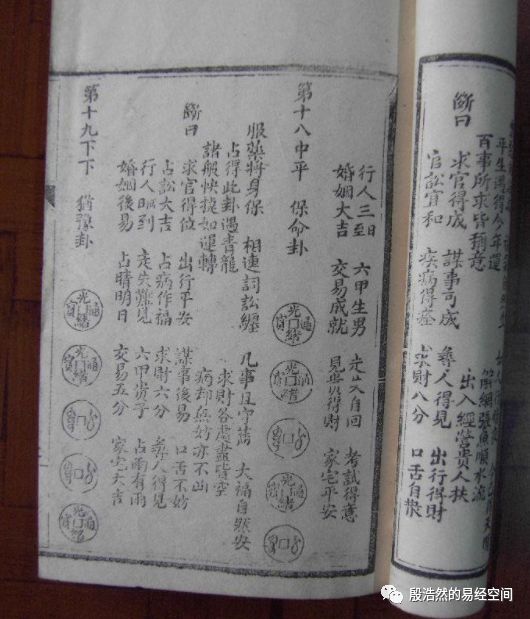 平生遇得今年運
百事所求皆稱意
網張魚順水流
出入經營貴人扶
斷曰
求官得成 謀事可成 尋人得見 出行得財
官訟宜和 疾病得痊 求財八分 口舌自散
行人三日至 六甲生男 走失自回 考試得意
婚姻大吉 交易成就 見貴得財 家宅平安
第十八中平 保命卦
光緒通寶
光緒通寶
光緒通寶
服藥將身保 相連詞訟纏 凡事且守舊 大福自然安
占得此卦遇青龍 求財各處盡皆空
諸般快捷如運轉 病却無妨亦不凶
斷曰
求官得位 出行平安 謀事後易 口舌不妨
占訟大吉 占病作福 求財六分 尋人得見
行人即到 走失難見 六甲貴子 占雨有雨
婚姻後易 占晴明日 交易五分 家宅大吉
第十九下下 猶豫卦
光緒通寶
光緒通寶
光緒通寶
殷浩然的易经空间